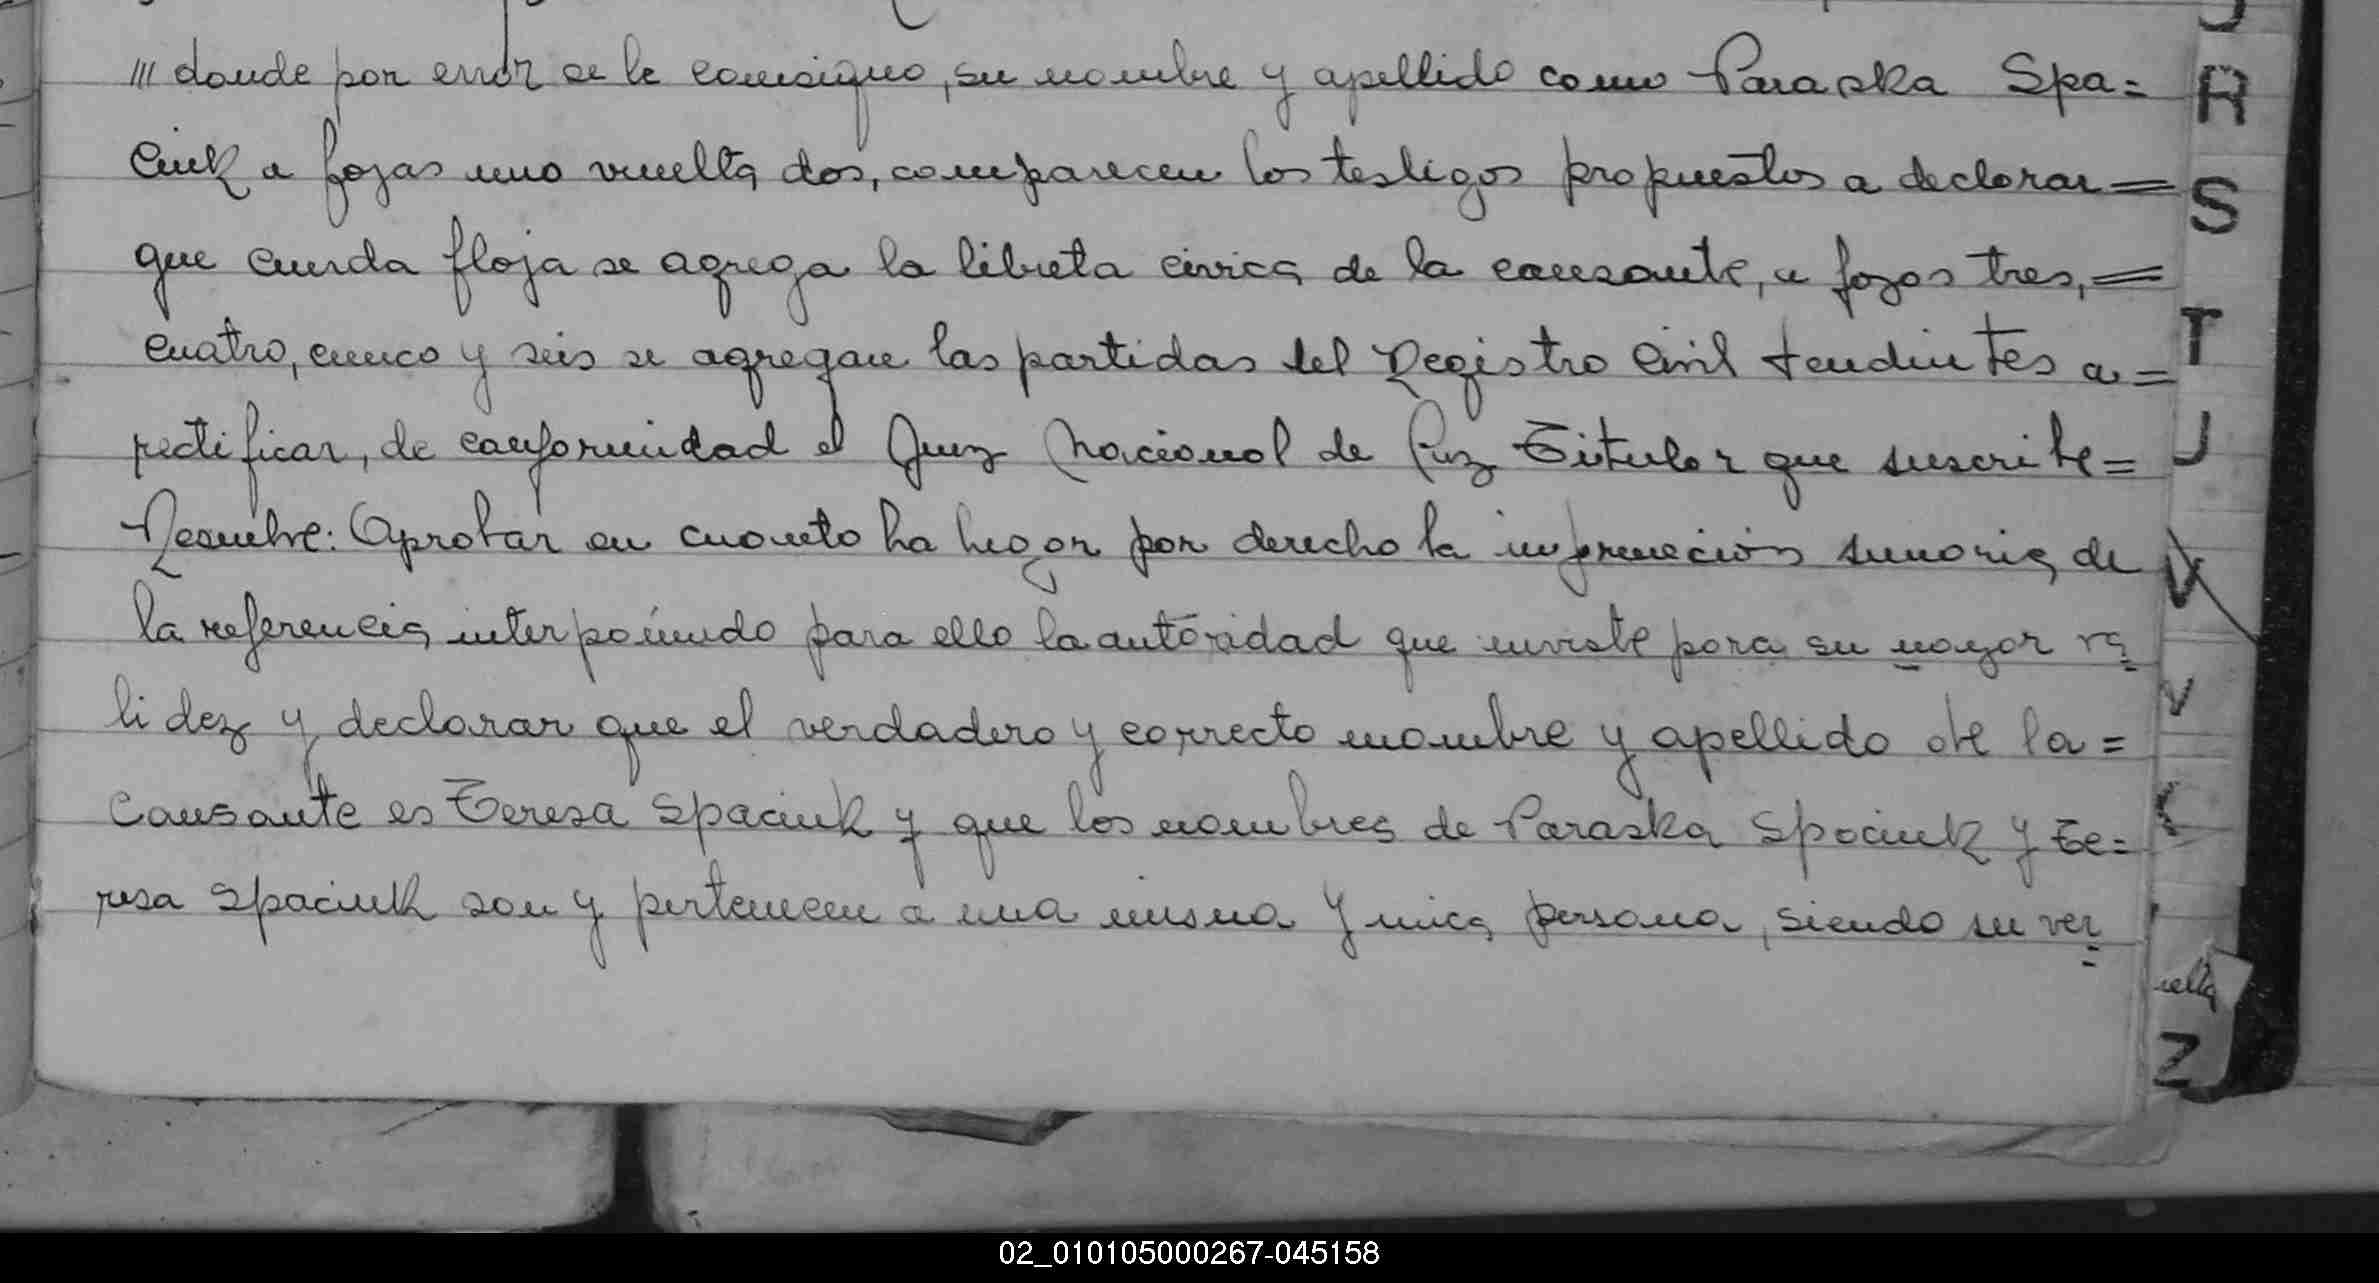 /// donde por error se le consigno, su nombre y apellido como Paraska Spa=
ciuk a fojas uno vuelta dos, comparecen los testigos propuestos a declarar=
que cuerda floja se agrega la libreta civica de la causante, a fojas tres,=
cuatro, cinco y seis se agregan las partidas del Registro Civil tendientes a=
rectificar, de conformidad el Juez Nacional de Paz Titular que suscribe=
Resuelve: Aprobar en cuanto ha lugar por derecho la información sumaria de
la referencia interponiendo para ello la autoridad que inviste para su mayor va
lidez y declarar que el verdadero y correcto nombre y apellido de la=
causante es Teresa Spaciuk y que los nombres de Paraska Spaciuk y Te=
resa Spaciuk son y pertenecen a una misma y unica persona, siendo su ver
R
S
T
J
V
Z
02_010105000267-045158